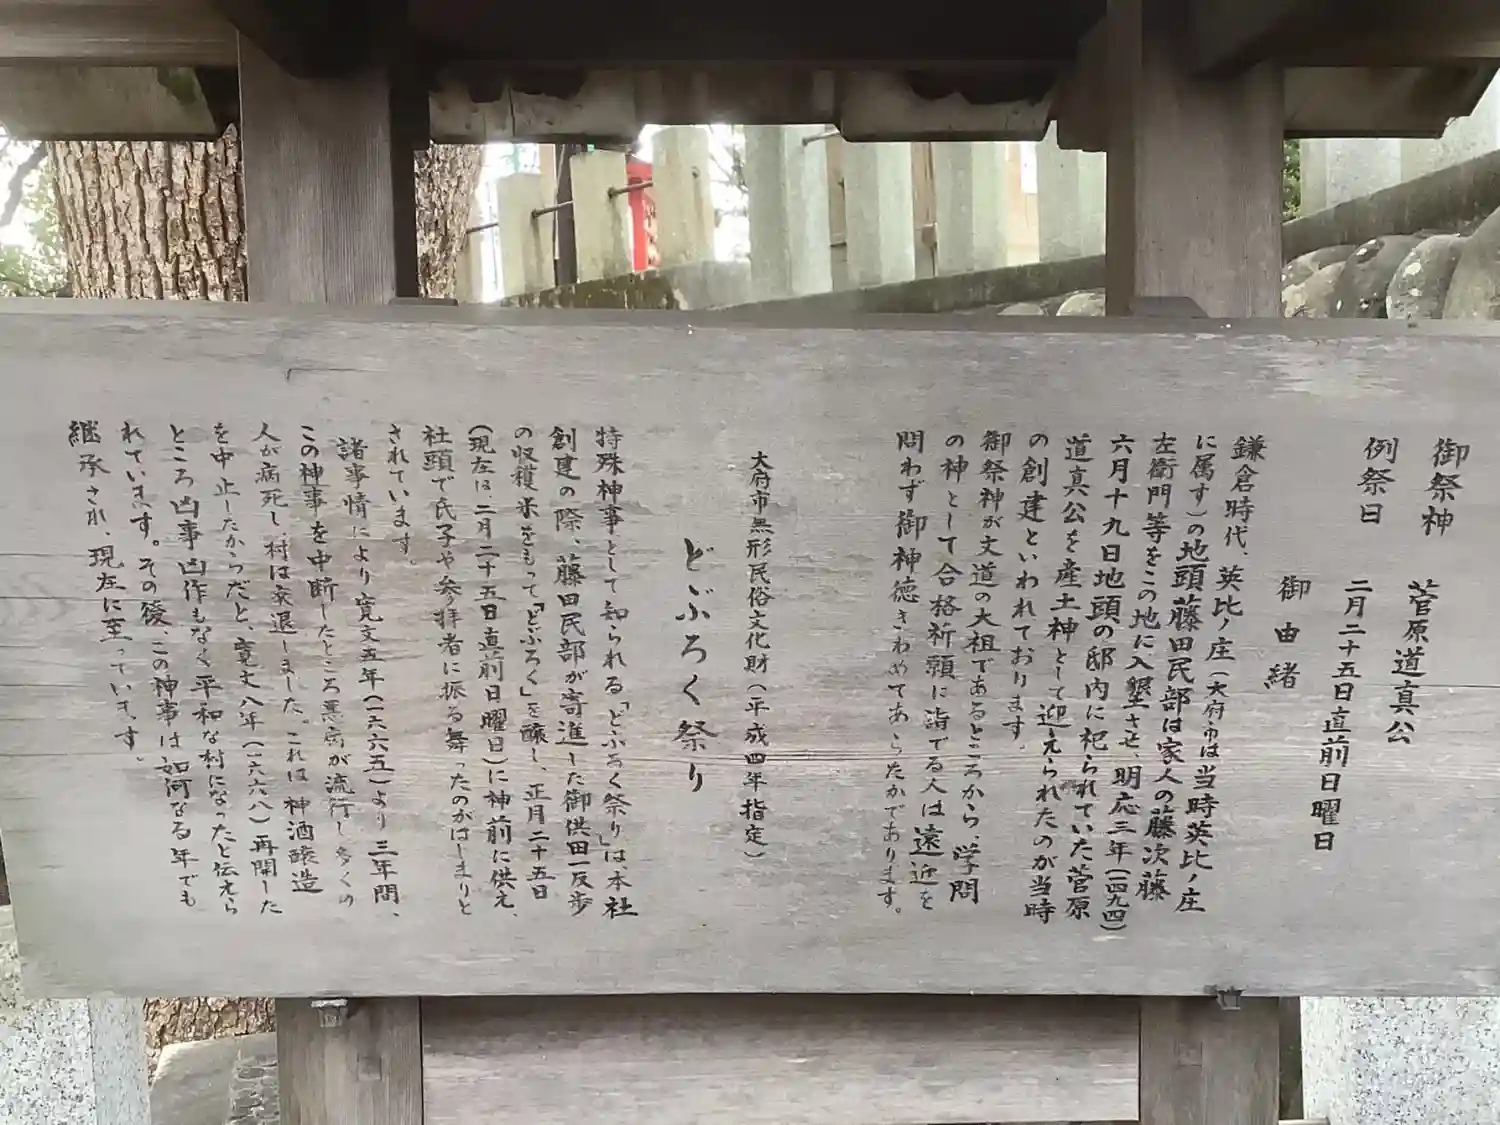 御祭神　菅原道真公
例祭日　二月二十五日直前日曜日
御由緒
鎌倉時代、英比ノ庄(大府市は当時英比ノ庄
に属す)の地頭藤田民部は家人の藤次藤
左衛門等をこの地に入墾させ、明応三年(一四九四)
六月十九日地頭の邸内に祀られていた菅原
道真公を産土神として迎えられたのが当時
の創建といわれております。
御祭神が文道の大祖であるところから、学問
の神として合格祈願に詣でる人は遠近を
問わず御神徳きわめてあらたかであります。
大府市無形民俗文化財(平成四年指定)
どぶろく祭り
特殊神事として知られる「どぶろく祭り」は本社
創建の際、藤田民部が寄進した御供田一反歩
の収穫米をもって「どぶろく」を醸し、正月二十五日
(現在は、二月二十五日直前日曜日)に神前に供え、
社頭で氏子や参拝者に振る舞ったのがはじまりと
されています。
諸事情により寛文五年(一六六五)より三年間、
この神事を中断したところ悪病が流行し多くの
人が病死し、村は衰退しました。これは神酒醸造
を中止したからだと、寛文八年(一六六八)再開した
ところ凶事凶作もなく平和な村になったと伝えら
れています。その後、この神事は如何なる年でも
継承され、現在に至っています。